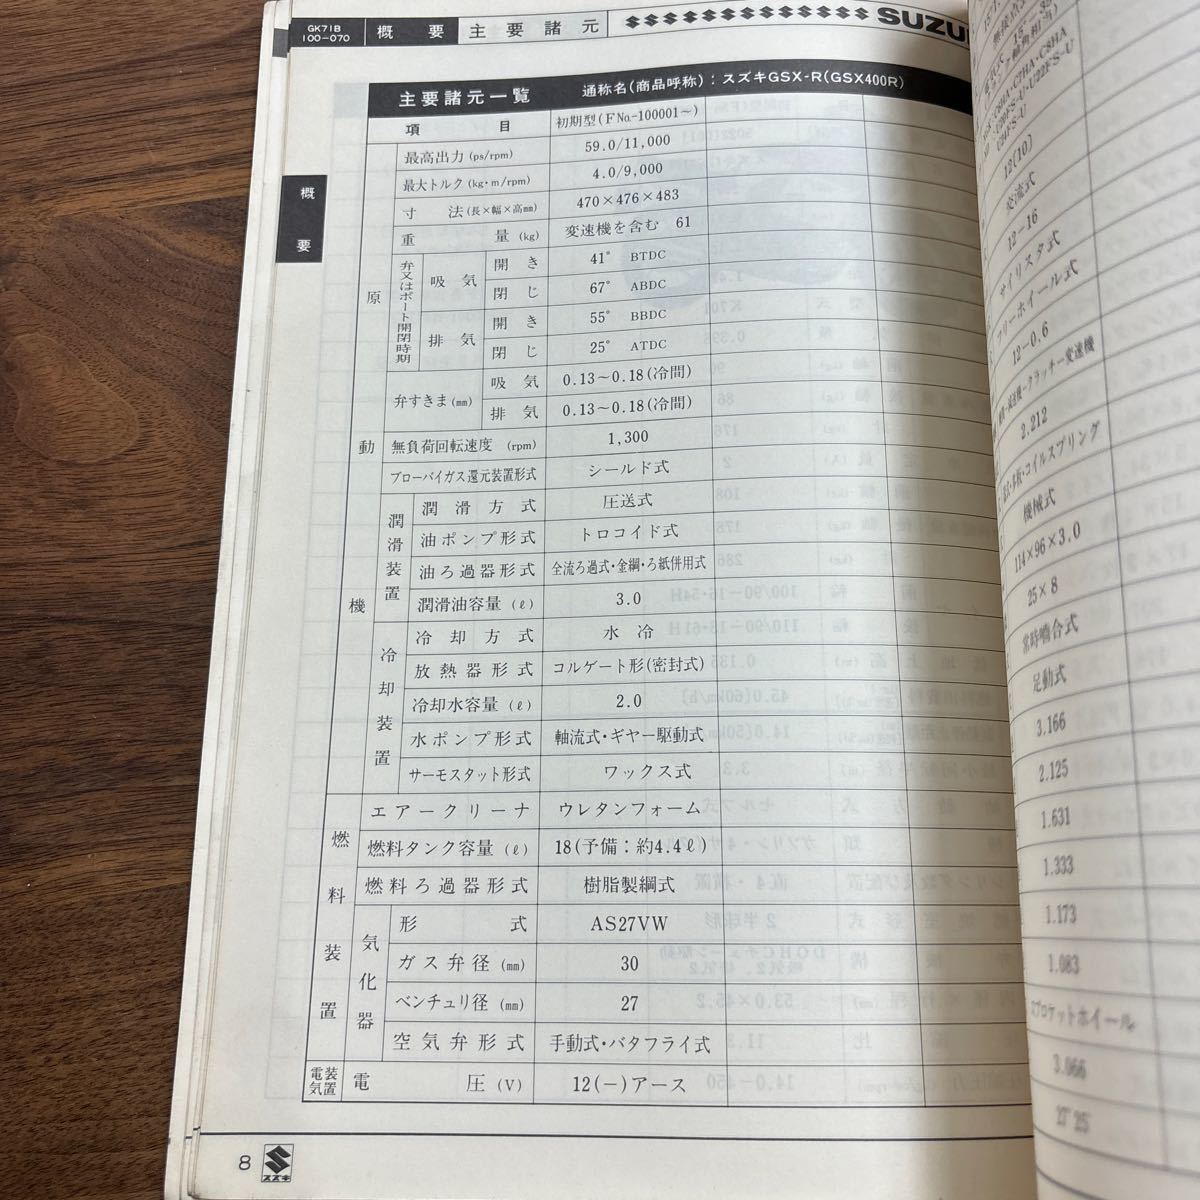 GK71B
100-070
概要
主要諸元
SUZU
概要
主要諸元一覧 通称名(商品呼称):スズキGSX-R(GSX400R)
項目 初期型(FNo.-100001〜)
原動機
最高出力(ps/rpm) 59.0/11,000
最大トルク(kg・m/rpm) 4.0/9,000
寸法(長×幅×高mm) 470×476×483
重量(kg) 変速機を含む 61
弁又はポート開閉時期
吸気 開き 41° BTDC
閉じ 67° ABDC
排気 開き 55° BBDC
閉じ 25° ATDC
弁すきま(mm) 吸気 0.13〜0.18(冷間)
排気 0.13〜0.18(冷間)
無負荷回転速度(rpm) 1,300
ブローバイガス還元装置形式 シールド式
潤滑装置
潤滑方式 圧送式
油ポンプ形式 トロコイド式
油ろ過器形式 全流ろ過式・金網・ろ紙併用式
潤滑油容量(ℓ) 3.0
冷却装置
冷却方式 水冷
放熱器形式 コルゲート形(密封式)
冷却水容量(ℓ) 2.0
水ポンプ形式 軸流式・ギヤー駆動式
サーモスタット形式 ワックス式
燃料装置
エアークリーナ ウレタンフォーム
燃料タンク容量(ℓ) 18(予備:約4.4ℓ)
燃料ろ過器形式 樹脂製網式
気化器
形式 AS27VW
ガス弁径(mm) 30
ベンチュリ径(mm) 27
空気弁形式 手動式・バタフライ式
電気装置
電圧(V) 12(−)アース
8
スズキ
12(10)
交流式
12-16
サイリスタ式
フリーホイール式
12-0.6
2.212
コイルスプリング
機械式
114×96×3.0
25×8
常時噛合式
足動式
3.166
2.125
1.631
1.333
1.173
1.083
スプロケットホイール
3.066
27°25′